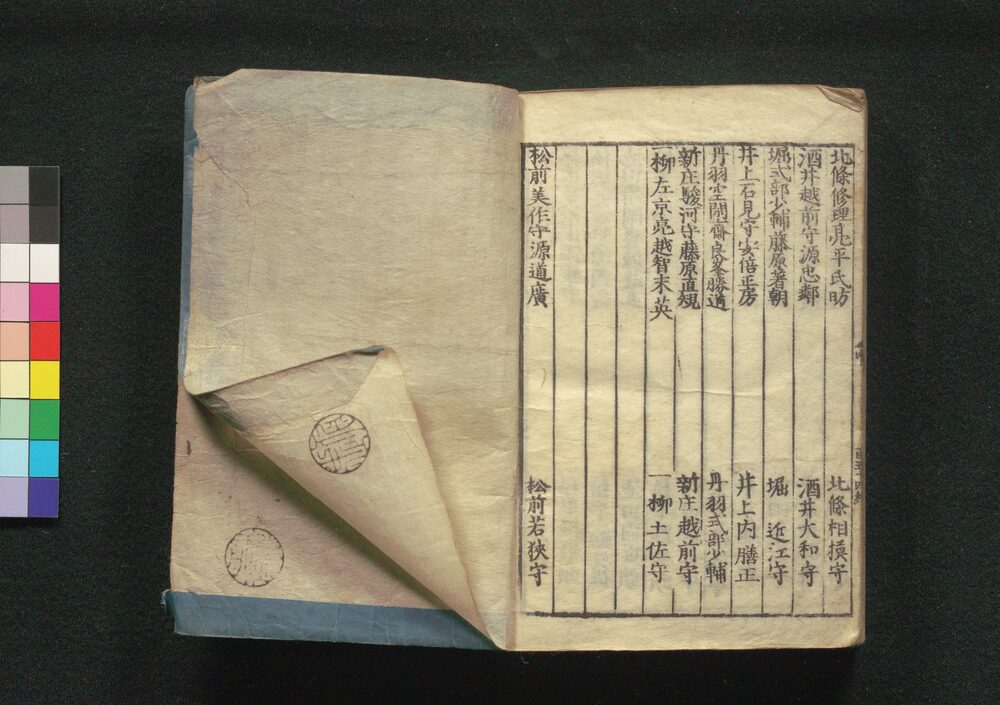 北條修理亮平氏昉 北條相摸守
酒井越前守源忠鄰 酒井大和守
堀式部少輔藤原著朝 堀 近江守
井上石見守安倍正房 井上内膳正
丹羽空閑齋良峯勝道 丹羽式部少輔
新庄駿河守藤原直規 新庄越前守
一柳左京亮越智末英 一柳土佐守
松前美作守源道廣 松前若狹守